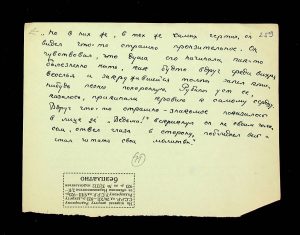 „Но в них же, в тех же самых чертах, он 259
видел что-то страшно пронзительное. Он
чувствовал, что душа его начинала как-то
болезненно ныть, как будто вдруг среди вихря
веселья и закружившейся толпы запел кто-
нибудь песню похоронную. Рубины уст ее,
казалось, прикипали кровию к самому сердцу.
Вдруг что-то страшно-знакомое показалось
в лице ее. „Ведьма!" вскрикнул он не своим голо-
сом, отвел глаза в сторону, побледнел весь и
стал читать свои молитвы."
БЕСПЛАТНО